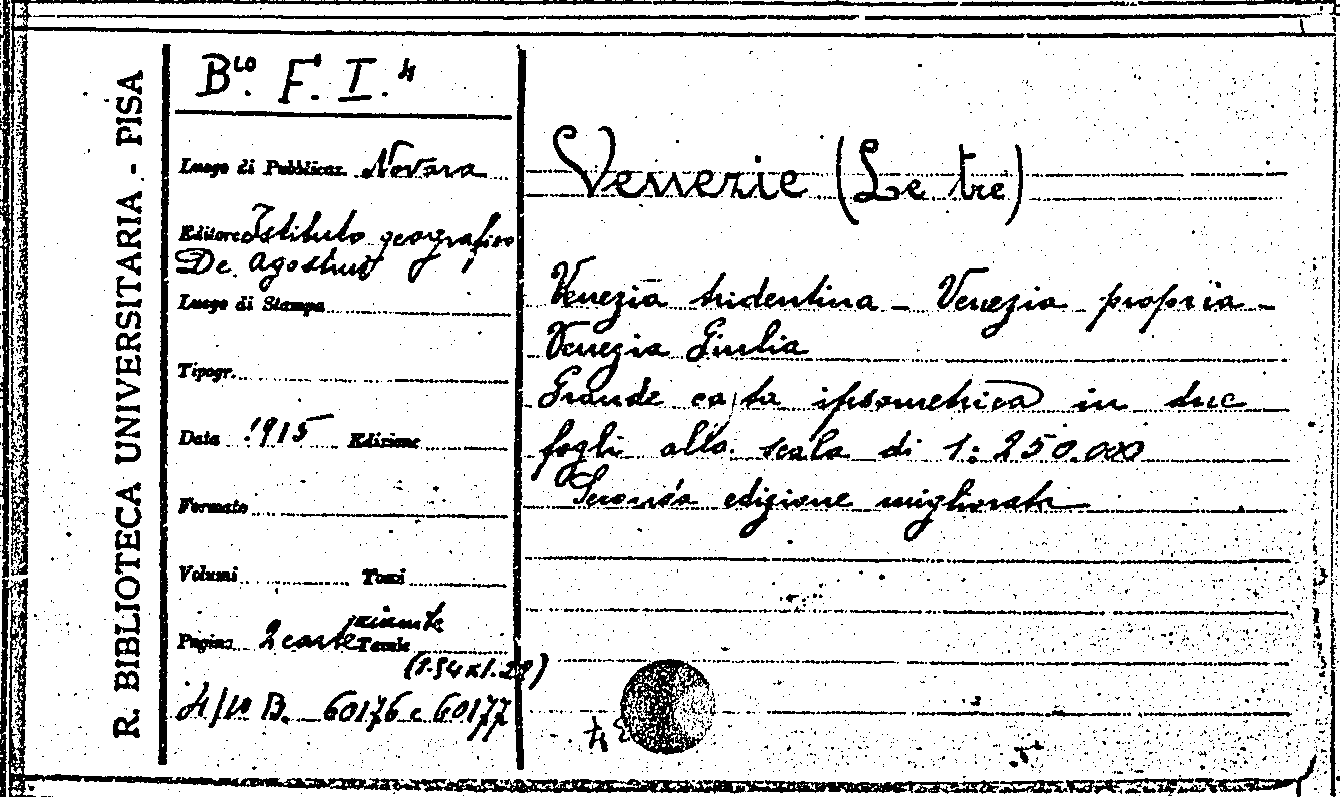 R. BIBLIOTECA UNIVERSITARIA - PISA
Bco. F. I. 4
Luogo di Pubblicaz. Novara
Editore Istituto geografico
De Agostini
Luogo di Stampa
Tipogr.
Data 1915 Edizione
Formato
Volumi Tomi
Pagine 2 carte Tavole
(1.54x1.29)
60176 e 60177
Venezie (Le tre)
Venezia tridentina - Venezia propria -
Venezia Giulia
Grande carta ipsometrica in due
fogli alla scala di 1:250.000
Seconda edizione migliorata